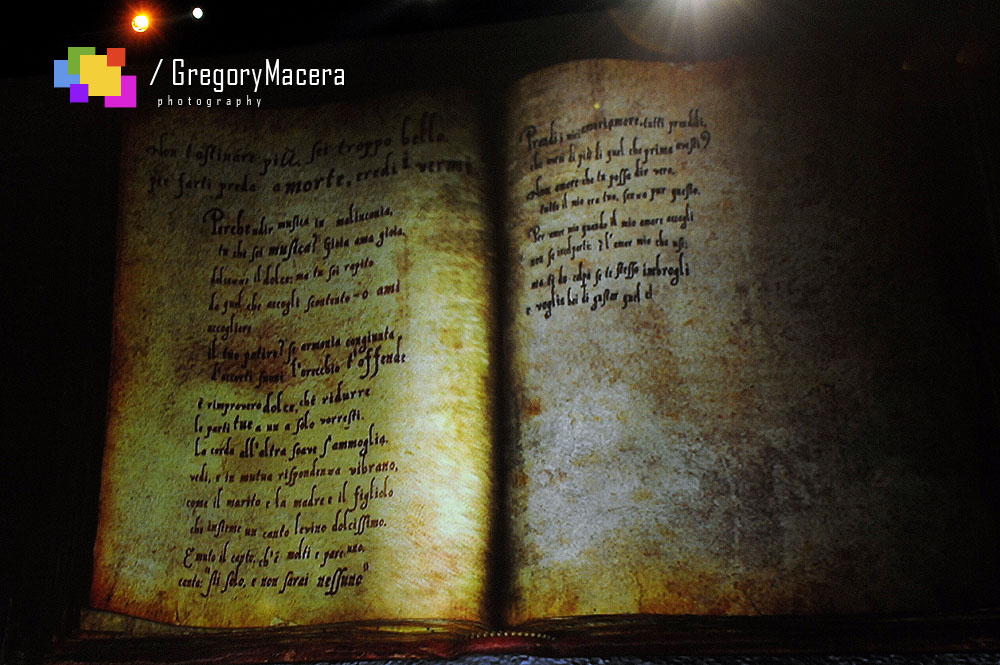 / GregoryMacera
photography
Non t'ostinare più, sei troppo bello.
per farti preda a morte, eredi i vermi
Perché udir musica in malinconia,
tu che sei musica? Gioia ama gioia,
il dolce; ma tu sei rapito
da quel che accogli scontento - o ami
accogliere
il tuo patire? Se armonia congiunta
d'accorti suoni l'orecchio t'offende
è rimprovero dolce, ché ridurre
le parti tue a un a solo vorresti.
La corda all'altra soave s'ammoglia,
vedi, e in mutua rispondenza vibrano,
come il marito e la madre e il figliolo
che insieme un canto levino dolcissimo.
E muto il canto, ch'è molti e pare uno,
canta: "sti solo, e non sarai nessuno"
Prendi i miei amori, amore, tutti prendili,
che avrai di più di quel che prima avesti?
Non amore che tu possa dir vero,
tutto il mio era tuo, senza pur questo.
Per amor mio quando il mio amore accogli
non se l'amor mio che usi;
ma ti do colpa se te stesso imbrogli
e voglia hai di gustar quel c